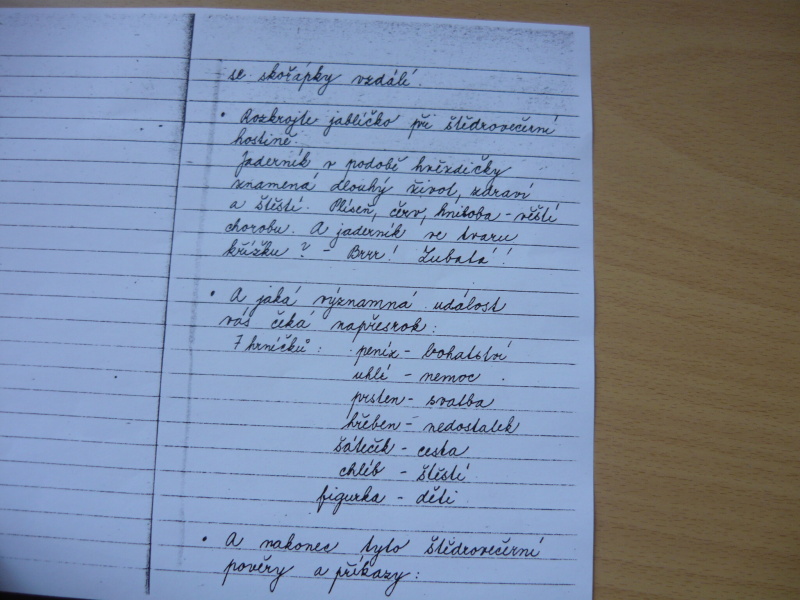 se skořápky vzdálí.
• Rozkrojte jablíčko při štědrovečerní
hostině.
Jaderník v podobě hvězdičky
znamená dlouhý život, zdraví
a štěstí. Plíseň, červ, hniloba - věští
chorobu. A jaderník ve tvaru
křížku? - Brrr! Zubatá!
• A jaká významná událost
vás čeká napřesrok:
7 hrníčků: peníz - bohatství
uhlí - nemoc
prsten - svatba
hřeben - nedostatek
šáteček - cesta
chléb - štěstí
figurka - děti
• A nakonec tyto štědrovečerní
pověry a příkazy: